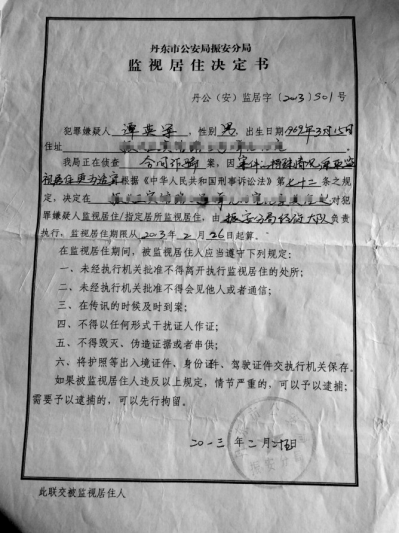 丹东市公安局振安分局
监视居住决定书
丹公(安)监居字〔2013〕501号
犯罪嫌疑人 谭 ,性别 男 出生日期 1969年3月15日
住址
我局正在侦查 合同诈骗 案,因 案件 特殊情况 监
视居住更为适宜 根据《中华人民共和国刑事诉讼法》第 七十二 条之规
定,决定在 对犯
罪嫌疑人监视居住/指定居所监视居住,由 振安分局经侦大队 负责
执行,监视居住期限从 2013 年 2 月 26 日起算。
在监视居住期间,被监视居住人应当遵守下列规定:
一、未经执行机关批准不得离开执行监视居住的处所;
二、未经执行机关批准不得会见他人或者通信;
三、在传讯的时候及时到案;
四、不得以任何形式干扰证人作证;
五、不得毁灭、伪造证据或者串供;
六、将护照等出入境证件、身份证件、驾驶证件交执行机关保存。
如果被监视居住人违反以上规定,情节严重的,可以予以逮捕;
需要予以逮捕的,可以先行拘留。
二〇一三 年 二 月 日
此联交被监视居住人